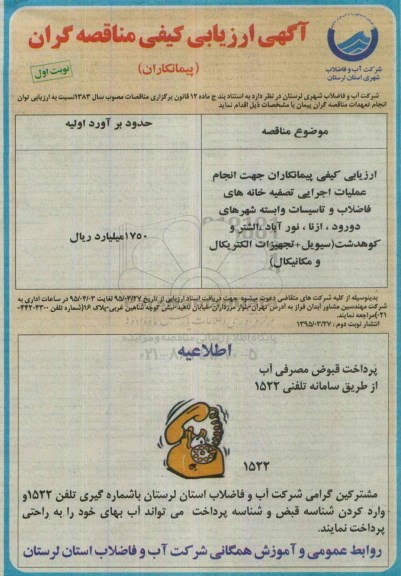 آگهی ارزیابی کیفی مناقصه گران
(پیمانکاران)
نوبت اول
شرکت آب و فاضلاب
شهری استان لرستان
شرکت آب و فاضلاب شهری لرستان در نظر دارد به استناد بند ج ماده ۱۲ قانون برگزاری مناقصات مصوب سال ۱۳۸۳نسبت به ارزیابی توان
انجام تعهدات مناقصه گران پیمان با مشخصات ذیل اقدام نماید
موضوع مناقصه
حدود بر آورد اولیه
ارزیابی کیفی پیمانکاران جهت انجام
عملیات اجرایی تصفیه خانه های
فاضلاب و تاسیسات وابسته شهرهای
دورود ، ازنا ، نور آباد ،الشتر و
کوهدشت(سیویل+تجهیزات الکتریکال
و مکانیکال)
۱۷۵۰میلیارد ریال
بدینوسیله از کلیه شرکت های متقاضی دعوت میشود جهت دریافت اسناد ارزیابی از تاریخ ۹۵/۰۳/۲۷ لغایت ۹۵/۰۴/۰۳ در ساعات اداری به
شرکت مهندسین مشاور آبدان فراز به آدرس تهران-بلوار مرزداران-خیابان ناهید-نبش کوچه شاهین غربی-پلاک ۱۶(شماره تلفن ۴۴۲۰۴۳۰۰-
۰۲۱)مراجعه نمایند.
انتشار نوبت دوم : ۱۳۹۵/۰۳/۲۷
اطلاعیه
پرداخت قبوض مصرفی آب
از طریق سامانه تلفنی ۱۵۲۲
۱۵۲۲
مشترکین گرامی شرکت آب و فاضلاب استان لرستان باشماره گیری تلفن ۱۵۲۲و
وارد کردن شناسه قبض و شناسه پرداخت می تواند آب بهای خود را به راحتی
پرداخت نمایند.
روابط عمومی و آموزش همگانی شرکت آب و فاضلاب استان لرستان